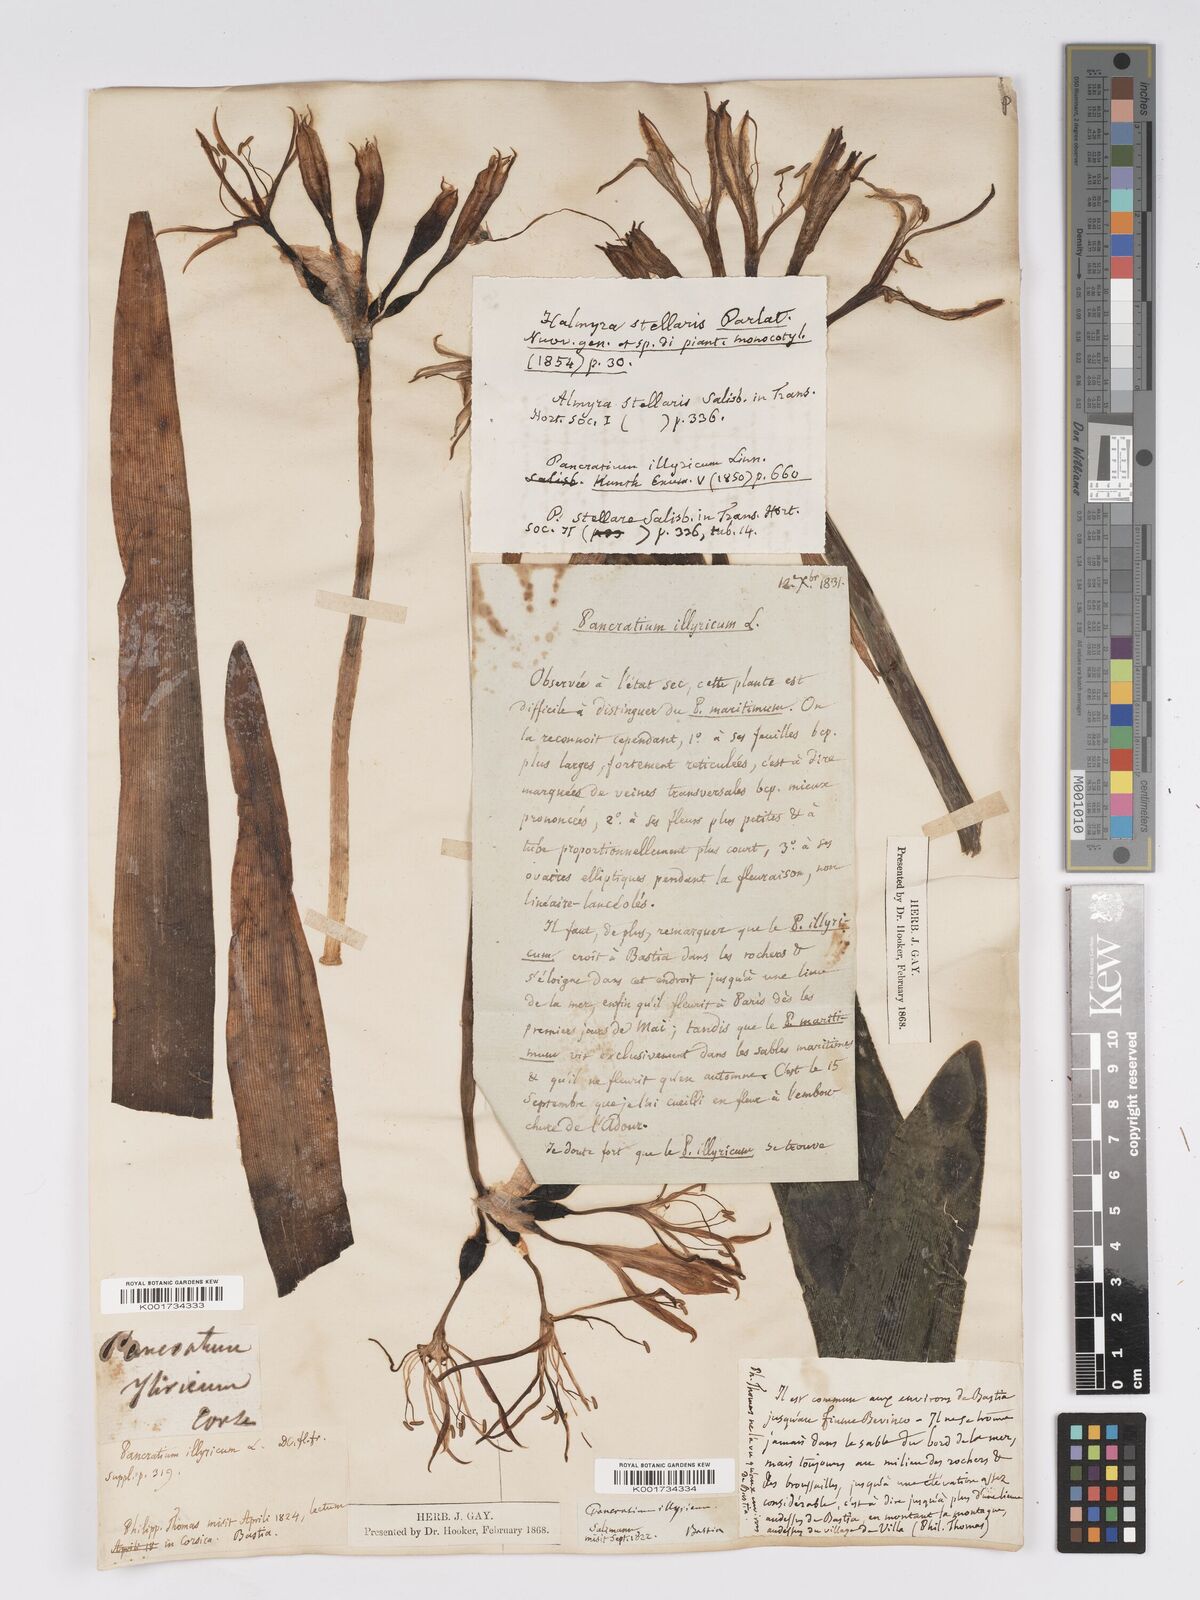 Halmyra stellaris Parlat.
Nuov. gen. et sp. di piant. monocotyl.
(1854) p. 30.
Almyra stellaris Salisb. in Trans.
Hort. Soc. I ( ) p. 336.
Pancratium illyricum Linn.
Salisb. Kunth Enum. V (1850) p. 660
P. stellare Salisb. in Trans. Hort.
Soc. ( ) p. 336, tab. 14.
12 Xbr 1831.
Pancratium illyricum L.
Observée à l'état sec, cette plante est
difficile à distinguer du P. maritimum. On
la reconnoit cependant, 1º. à ses feuilles bcp.
plus larges, fortement reticulées, c'est à dire
marquées de veines transversales bcp. mieux
prononcées, 2º. à ses fleurs plus petites & à
tube proportionnellement plus court, 3º. à ses
ovaires elliptiques pendant la fleuraison, non
linéaire-lancéolés.
Il faut, de plus, remarquer que le P. illyri-
cum croit à Bastia dans les rochers &
s'éloigne dans cet endroit jusqu'à une lieue
de la mer, enfin qu'il fleurit à Paris dès les
premiers jours de Mai; tandis que le P. mariti-
mum vit exclusivement dans les sables maritimes
& qu'il ne fleurit qu'en automne. C'est le 15
Septembre que je l'ai cueilli en fleur à l'embou-
chure de l'Adour.
Je doute fort que le P. illyricum se trouve
HERB. J. GAY.
Presented by Dr. Hooker, February 1868.
ROYAL BOTANIC GARDENS KEW
K001734333
Pancratium
Yliricum
Corse
Pancratium illyricum L. DC. fl. fr.
suppl. p. 319.
Philipp. Thomas misit Aprili 1824, lectum
Aprili in Corsica. Bastia.
HERB. J. GAY.
Presented by Dr. Hooker, February 1868.
ROYAL BOTANIC GARDENS KEW
K001734334
Pancratium illyricum
Salzmann
misit Sept. 1822. Bastia
Ph. Thomas ne l'a vu qu'aux environs
de Bastia
Il est commun aux environs de Bastia
jusqu'au fiume Bevinco - Il ne se trouve
jamais dans le sable du bord de la mer,
mais toujours au milieu des rochers &
des broussailles, jusqu'à une élévation assez
considérable, c'est à dire jusqu'à plus d'une lieue
au dessus de Bastia, en montant la montagne,
au dessus du village de Villa (Phil. Thomas)
inches
centimeters
Density
Don Williams
M001010
Kew
Royal Botanic Gardens
copyright reserved
cm
0 1 2 3 4 5 6 7 8 9 10